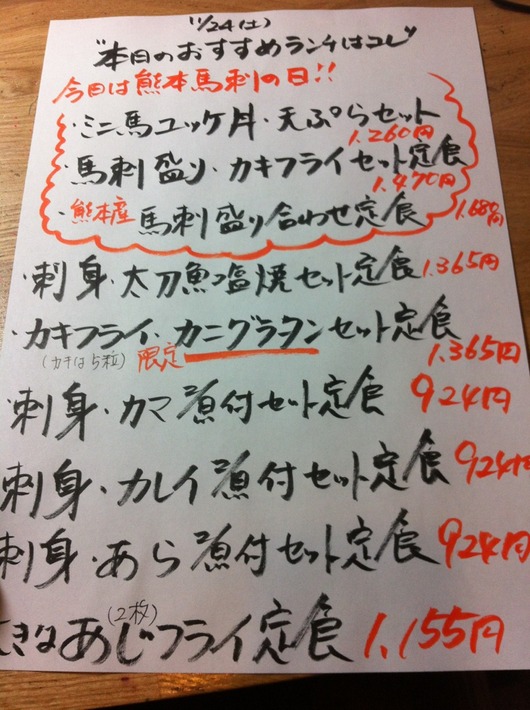 11/24(土)
"本日のおすすめランチはコレ"
今日は熊本馬刺の日!!
・ミニ馬ユッケ丼・天ぷらセット
1.260円
・馬刺盛り・カキフライセット定食
1.470円
・熊本産 馬刺盛り合わせ定食 1.680円
・刺身・太刀魚塩焼セット定食 1.365円
・カキフライ・カニグラタンセット定食
(カキは5粒) 限定 1.365円
・刺身・カマ煮付セット定食 924円
刺身・カレイ煮付セット定食 924円
刺身・あら煮付セット定食 924円
(2枚)
きなあじフライ定食 1.155円